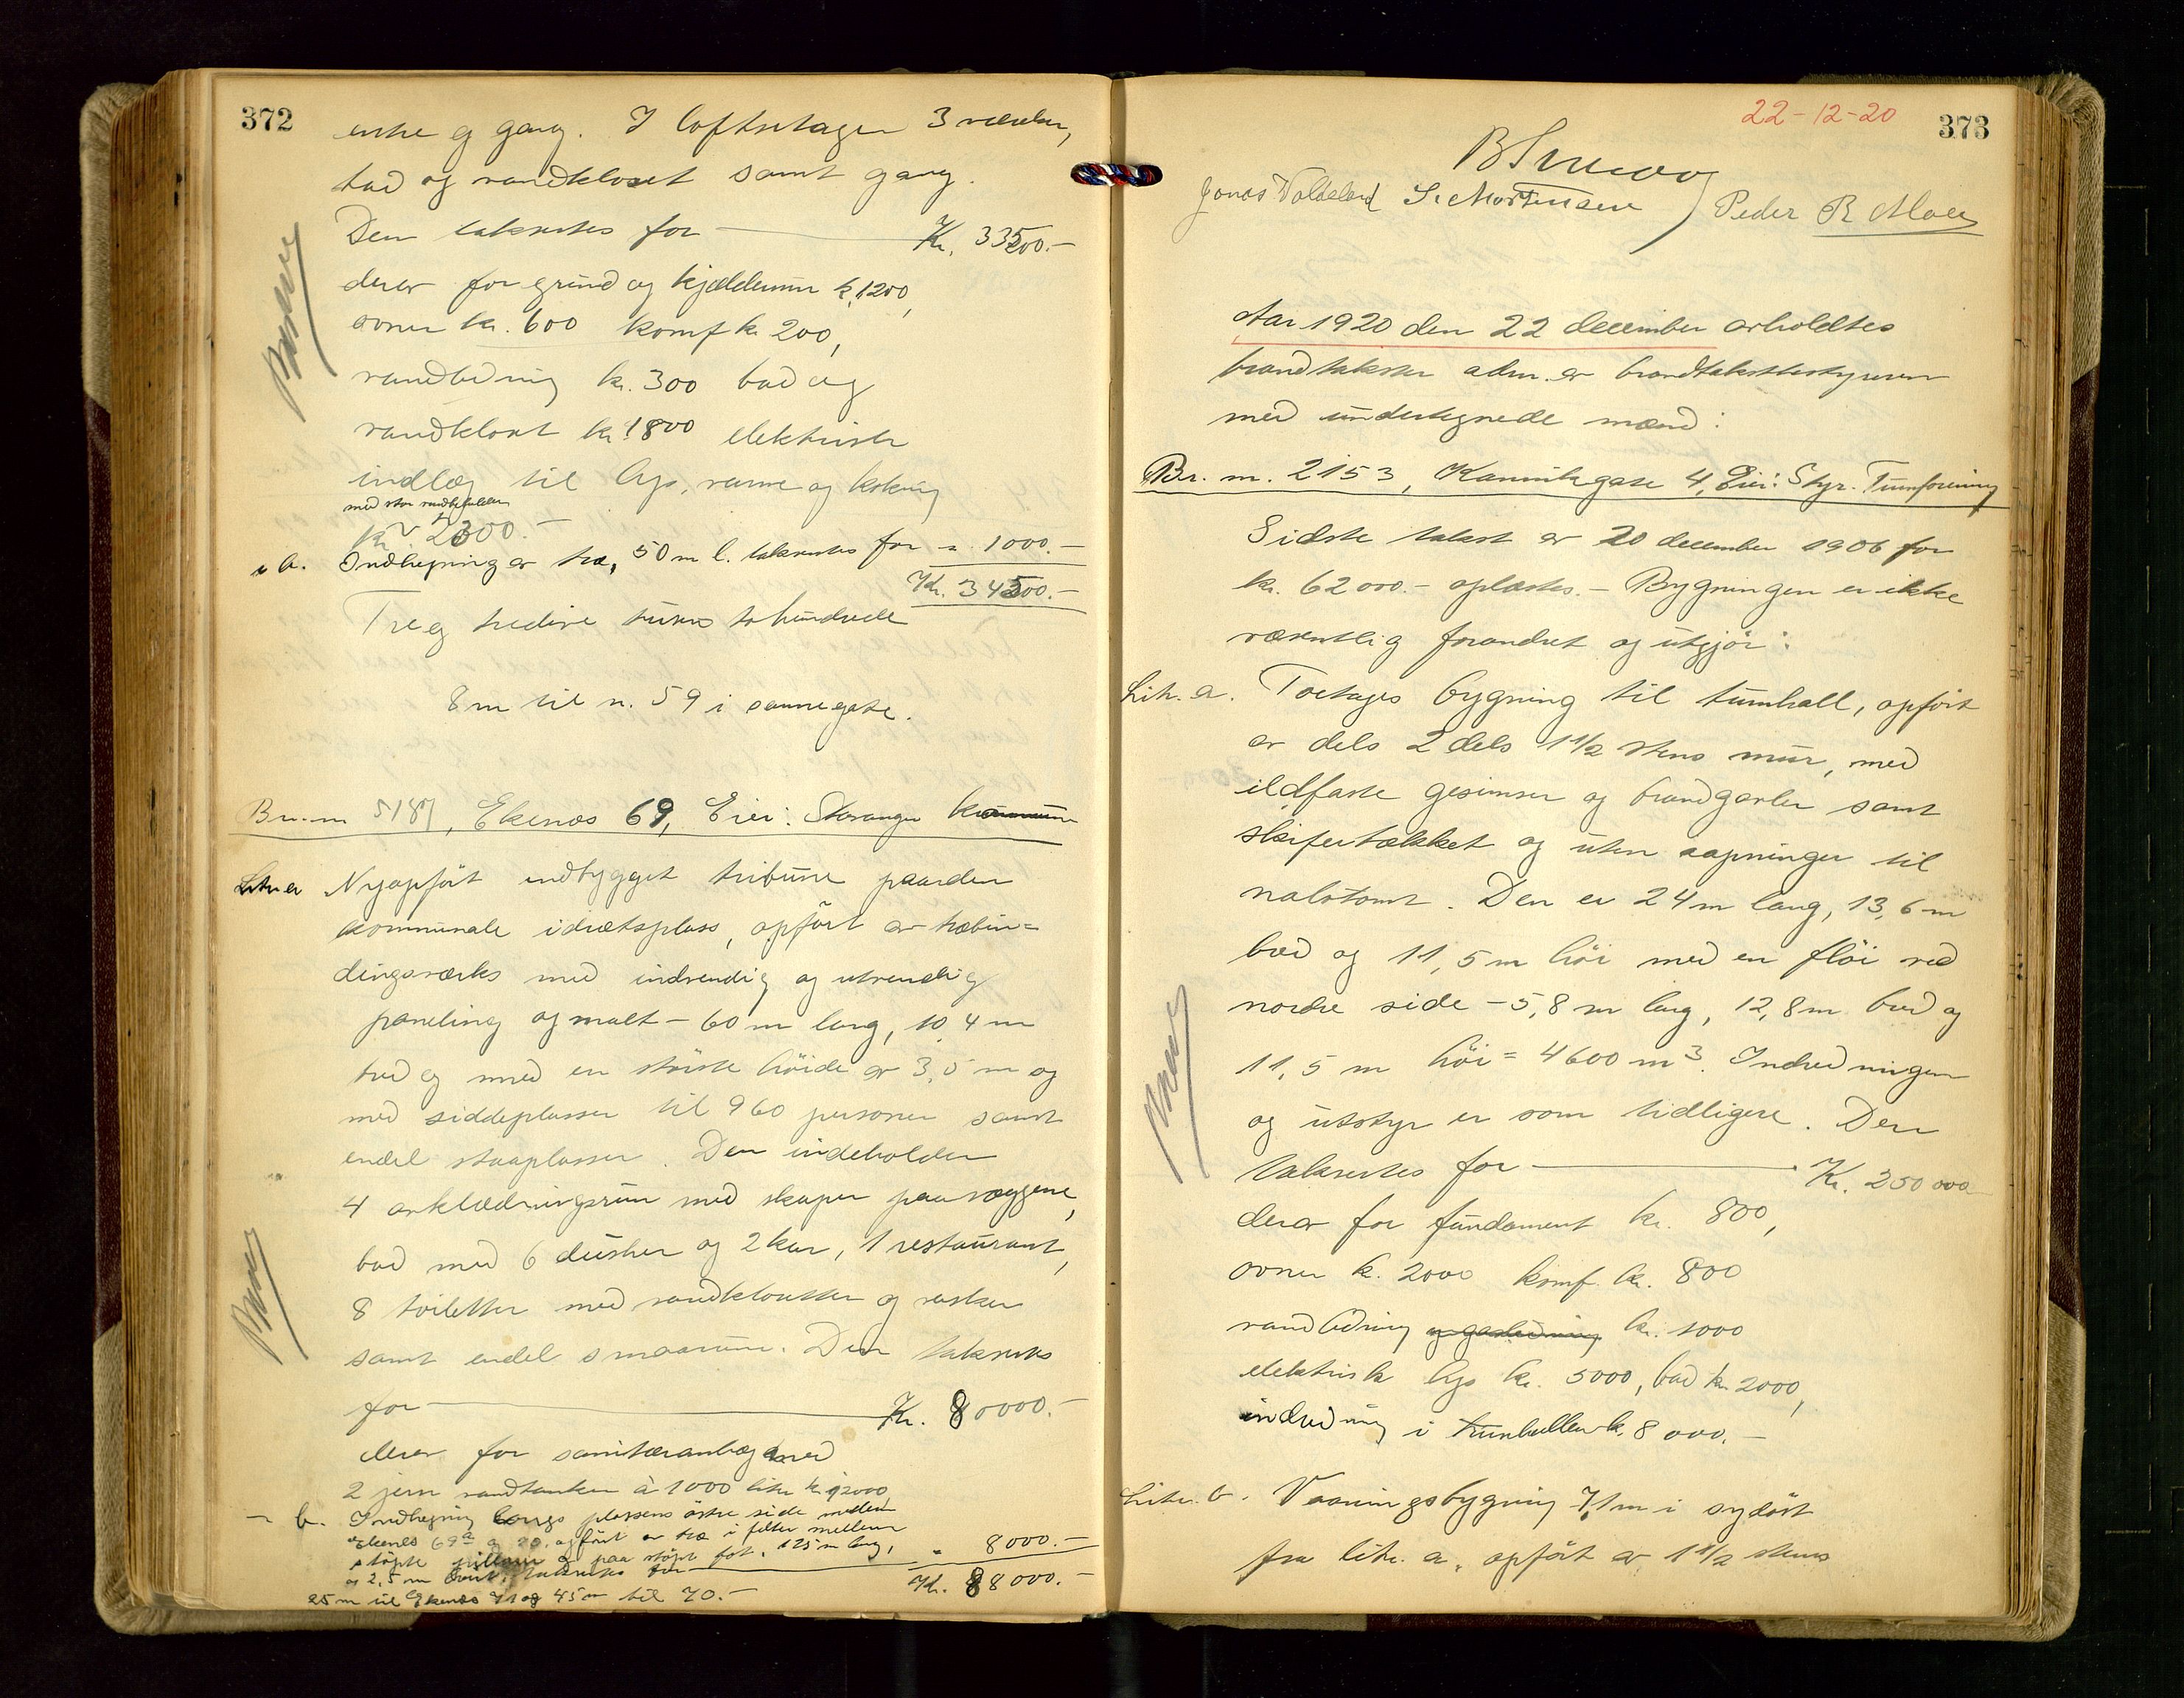 372
entre og gang. I loftsetagen 3 værelser,
bad og vandkloset samt gang.
Den takseres for Kr. 33500.-
derav for grund og kjældermur k. 1200,
ovner kr. 600 komf kr 200,
vandledning kr. 300 bad og
vandkloset kr. 1800 elektrisk
indlæg til lys, varme og kokning
med stor vandbeholder
kr 2300.-
" b. Indhegning av træ, 50 m l. takseres for " 1000.-
Kr. 34500.-
Tre og tredive tusen to hundrede
8 m til n. 59 i samme gate.
Br. n 5187, Ekenæs 69, Eier: Stavanger kommune
Litr a Nyopført indbygget tribune paa den
kommunale idrætsplass, opført av træbin=
dingsverks med indvendig og utvendig
paneling og malt - 60 m lang, 10,4 m
bred og med en største høide av 3,5 m og
med siddeplasser til 960 personer samt
endel staaplasser. Den indeholder
4 avklædningsrum med skaper paa væggene,
bad med 6 dusher og 2 kar, 1 restaurant,
8 toiletter med vandklosetter og vasker
samt endel smaarum. Den takseres
for Kr. 80000.-
derav for sanitæranlæg med
2 jern vandtanker à 1000 liter kr 12000
- b. Indhegning langs plassens østre side mellem
Ekenæs 69a og 70. opført av træ i felter mellem
støpte pillarer og paa støpt fot, 125 m lang,
og 2,5 m høit, takseres for " 8000.-
Kr. 88000.-
25 m til Ekenæs 71 og 45 m til 70.-
22-12-20
373
Jonas Valdeland S. Mortensen Peder R Moen
Aar 1920 den 22 december avholdtes
brandtakster adm. av brandtakstbestyreren
med undertegnede mænd:
Br. n. 2153, Kannikgate 4, Eier: Stgr. Turnforening
Sidste takst av 20 december 1906 for
kr. 62000.- oplæstes. - Bygningen er ikke
væsentlig forandret og utgjør:
Litr. a. Toetages bygning til turnhall, opført
av dels 2 dels 1 1/2 stens mur, med
ildfaste gesimser og brandgavler samt
skifertækket og uten aapninger til
nabotomt. Den er 24 m lang, 13,6 m
bred og 11,5 m høi med en fløi ved
nordre side - 5,8 m lang, 12,8 m bred og
11,5 m høi = 4600 m³. Indredningen
og utstyr er som tidligere. Den
takseres for Kr. 250000
derav for fundament kr. 800,
ovner k. 2000 komf. kr. 800
vandledning og gasledning kr. 1000
elektrisk lys kr. 5000, bad kr. 2000,
indredning i turnhallen k. 8000.-
Litr. b. Vaaningsbygning 7,1 m i sydøst
fra litr. a, opført av 1 1/2 stens